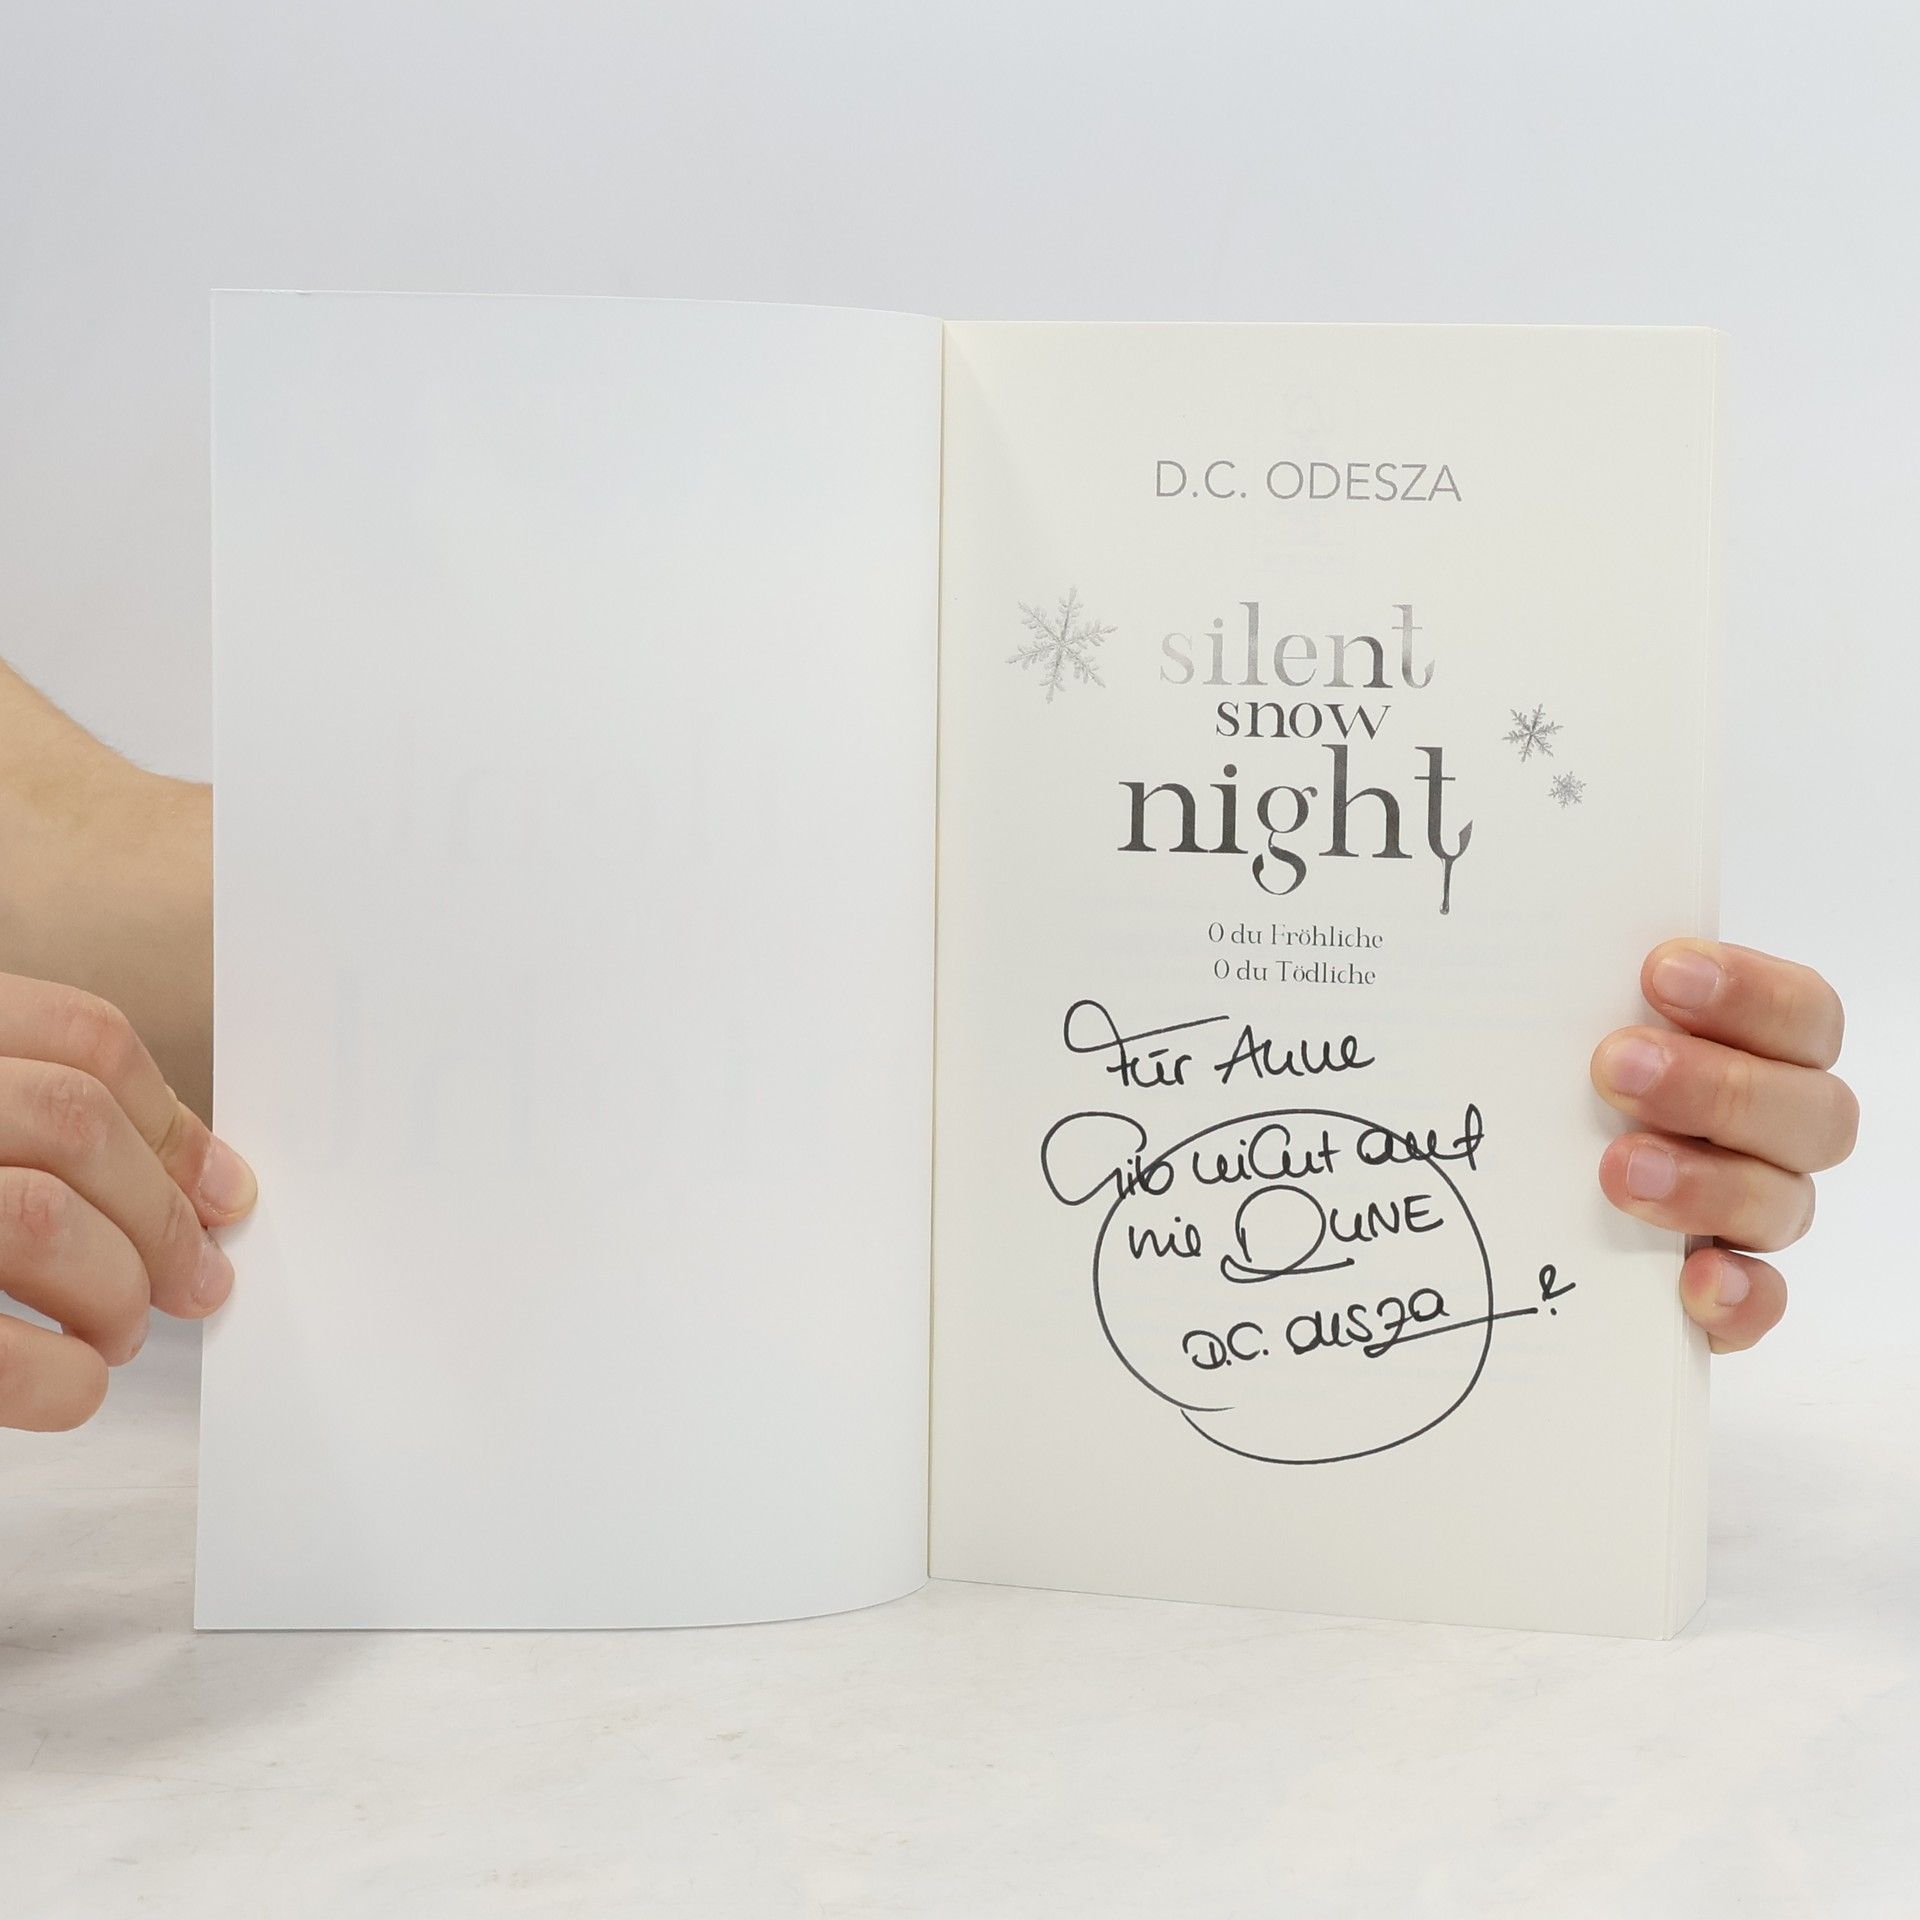 D.C. ODESZA
silent
snow
night
O du Fröhliche
O du Tödliche
Für Anne
Gib nicht auf
wie DUNE
D.C. Odesza